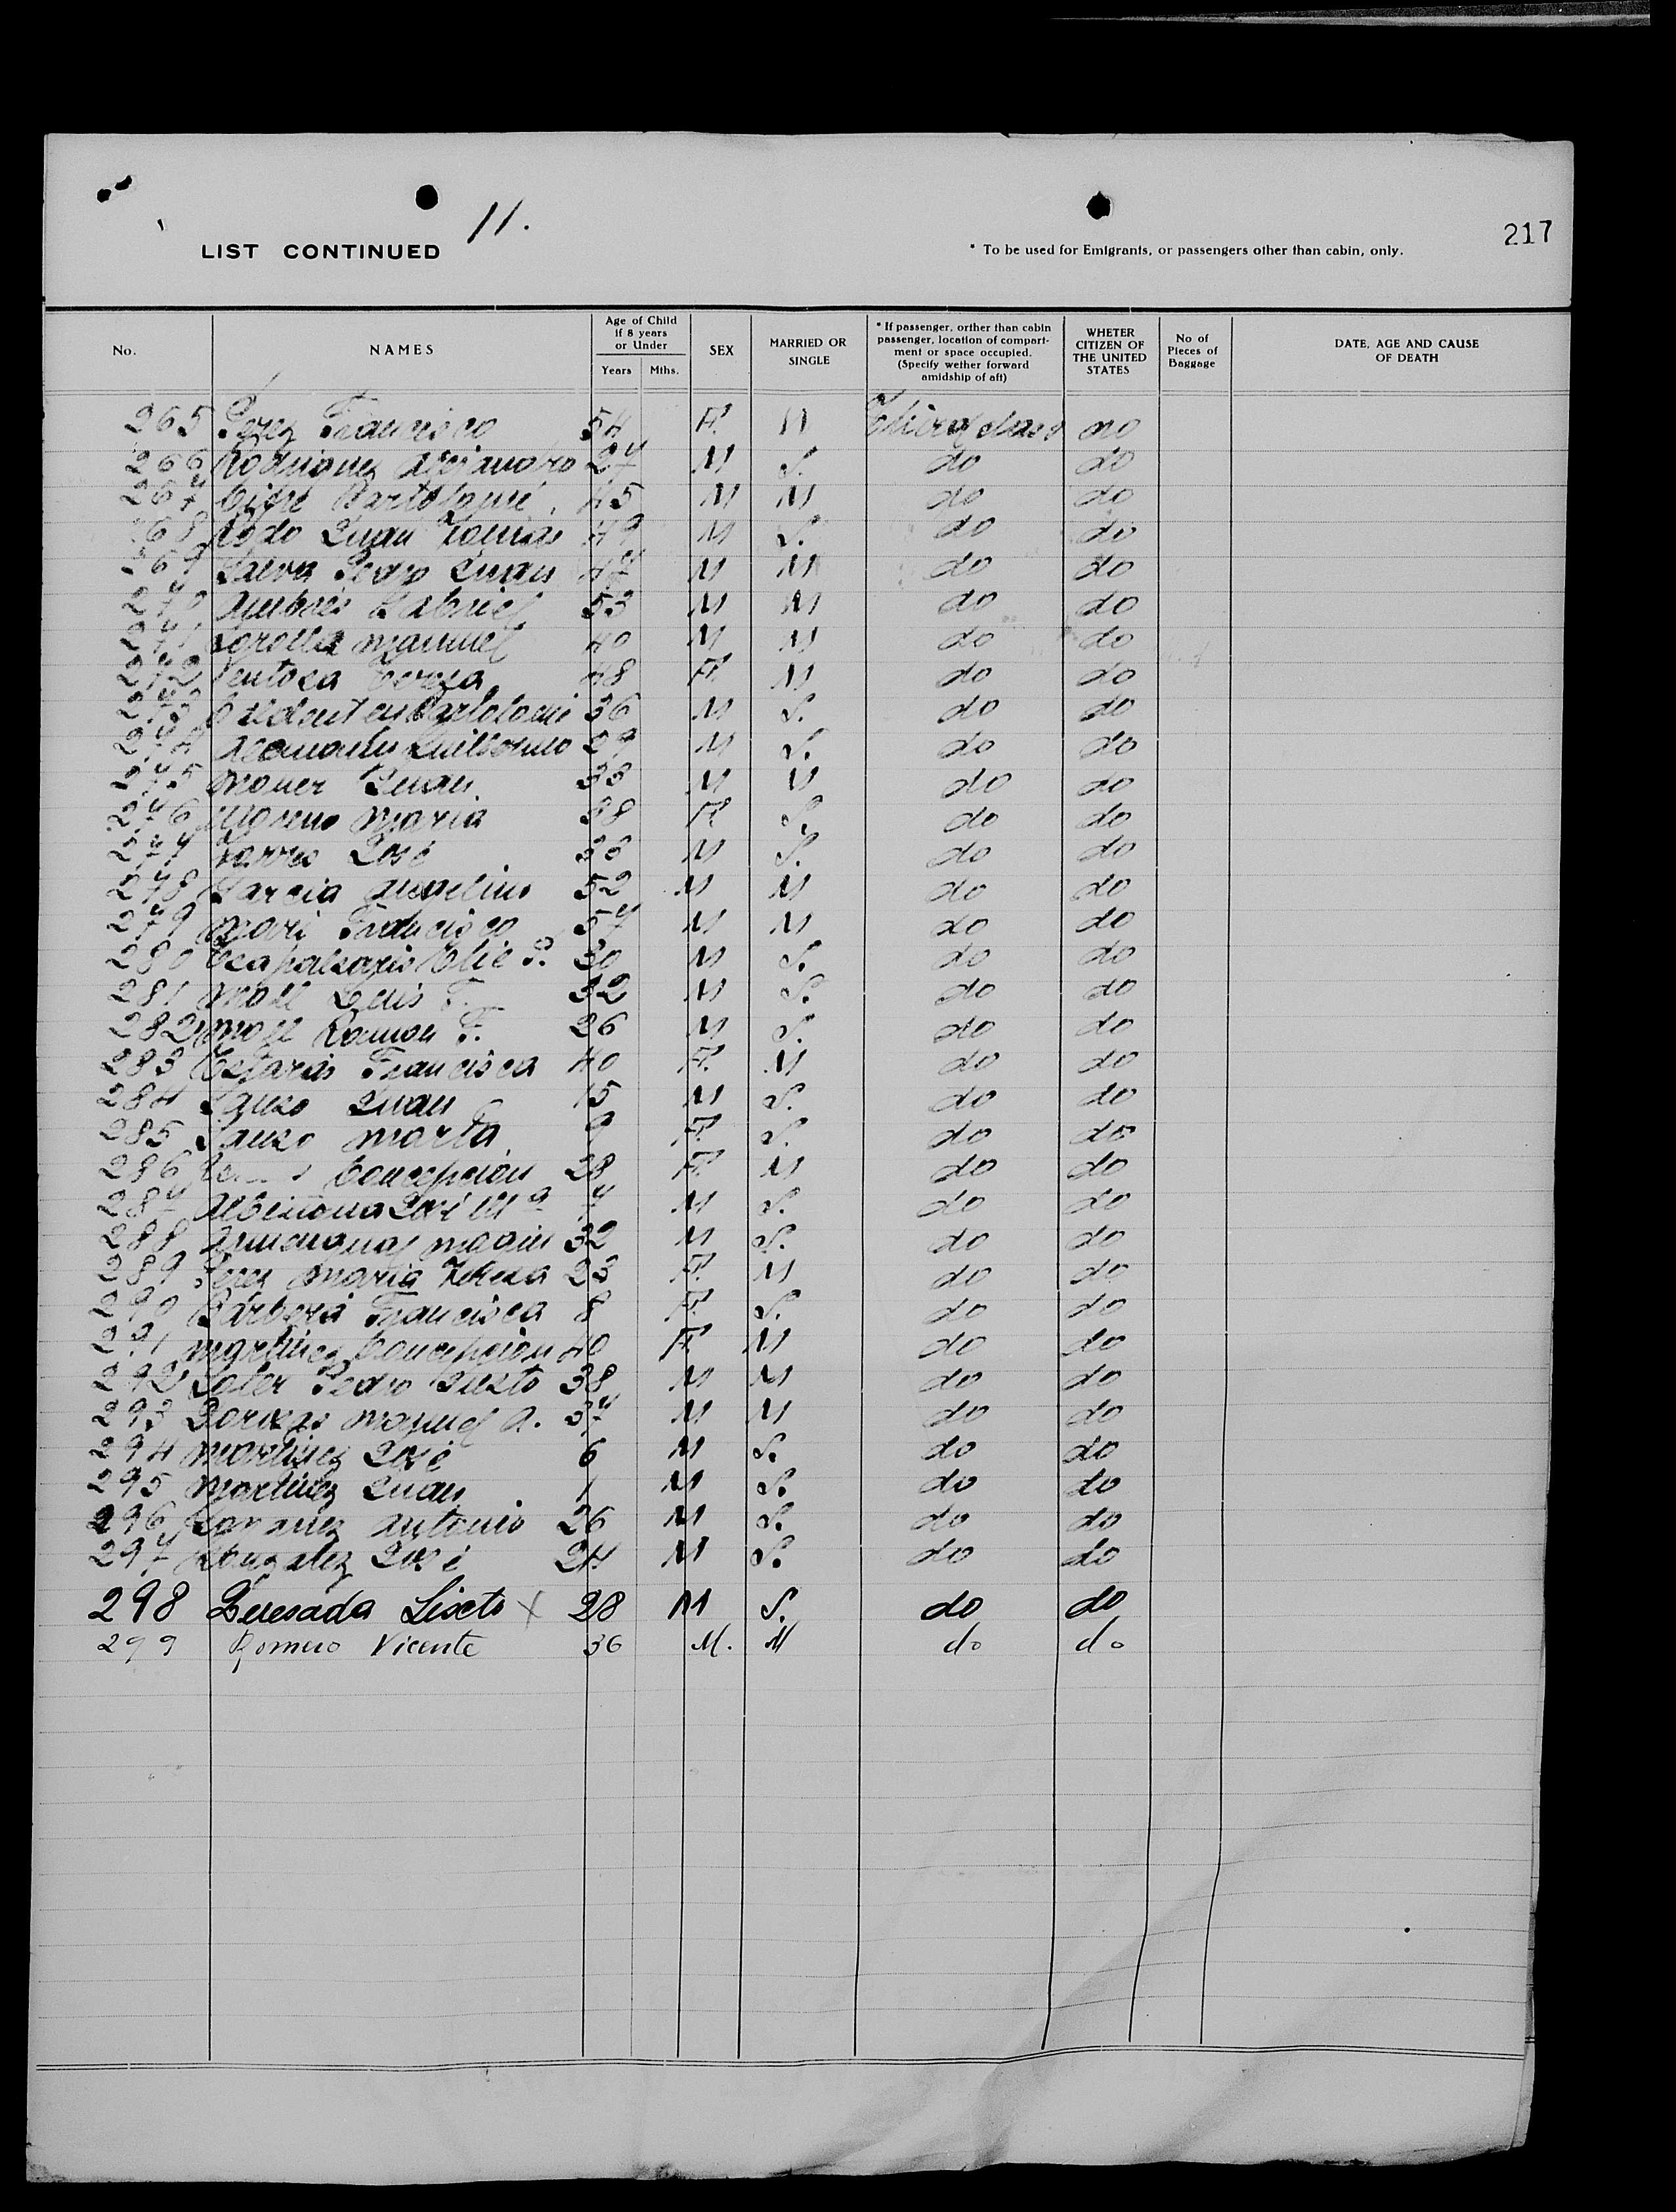 11.
217
LIST CONTINUED
* To be used for Emigrants, or passengers other than cabin, only.
No. NAMES Age of Child if 8 years or Under Years Mths. SEX MARRIED OR SINGLE * If passenger, orther than cabin passenger, location of compartment or space occupied. (Specify wether forward amidship of aft) WHETER CITIZEN OF THE UNITED STATES No of Pieces of Baggage DATE, AGE AND CAUSE OF DEATH
265 Perez Francisco 54 F. M Third class no
266 Rodriguez Alejandro 27 M S. do do
267 Cifre Bartolomé 45 M M do do
268 Juan Tomas 49 M S. do do
269 Salva Pedro Juan 47 M M do do
270 Gabriel 53 M M do do
271 Manuel 40 M M do do
272 48 F. M do do
273 Bartolomé 36 M S. do do
274 Guillermo 29 M S. do do
275 Moner Juan 33 M M do do
276 Moreno Maria 38 F. S. do do
277 Torres José M S. do do
278 Garcia 52 M M do do
279 Mari Francisco 57 M M do do
280 Elie P. 30 M S. do do
281 Moll Luis F. 32 M S. do do
282 Moll Ramon F. 26 M S. do do
283 Francisca 40 F. M do do
284 Juan 15 M S. do do
285 Marta 9 F. S. do do
286 Concepcion 28 F. M do do
287 Albiñana José Mª 7 M S. do do
288 Magin 32 M S. do do
289 Perez Maria Teresa 23 F. M do do
290 Barbera Francisca 8 F. S. do do
291 Martinez Concepcion 40 F M do do
292 Soler Pedro Justo 38 M M do do
293 Manuel A. 37 M M do do
294 Martinez José 6 M S. do do
295 Martinez Juan 1 M S. do do
296 Antonio 26 M S. do do
297 Gonzalez José 24 M S. do do
298 Liseto X 28 M S. do do
299 Romero Vicente 36 M. M do do